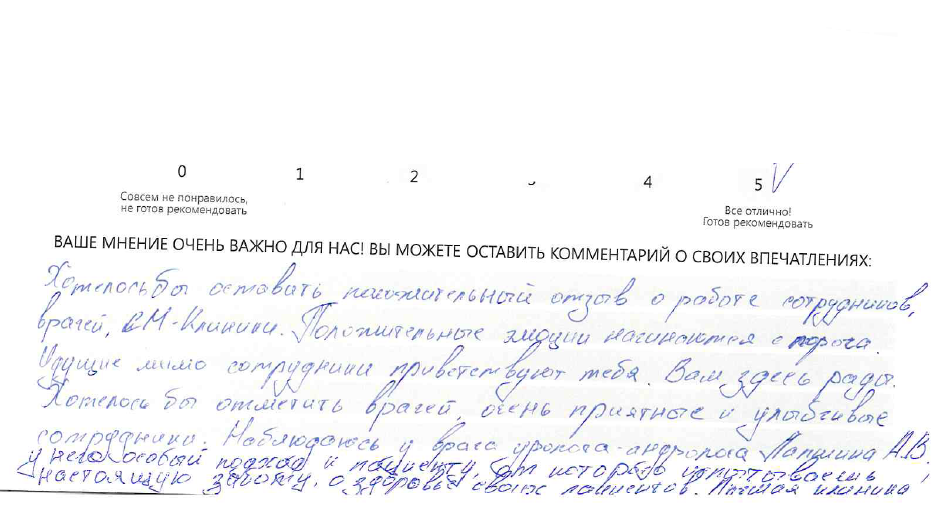 0 1 2 4 5 V
Совсем не понравилось,
не готов рекомендовать
Все отлично!
Готов рекомендовать
ВАШЕ МНЕНИЕ ОЧЕНЬ ВАЖНО ДЛЯ НАС! ВЫ МОЖЕТЕ ОСТАВИТЬ КОММЕНТАРИЙ О СВОИХ ВПЕЧАТЛЕНИЯХ:
Хотелось бы оставить положительный отзыв о работе сотрудников,
врачей, СМ-Клиники. Положительные эмоции начинаются с порога.
Идущие мимо сотрудники приветствуют тебя. Вам здесь рады.
Хотелось бы отметить врачей, очень приятные и улыбчивые
сотрудники. Наблюдаюсь у врача уролога-андролога А.В.
у него особый подход к пациенту, от которого испытываешь
настоящую заботу, о здоровье своих пациентов. Лучшая клиника!